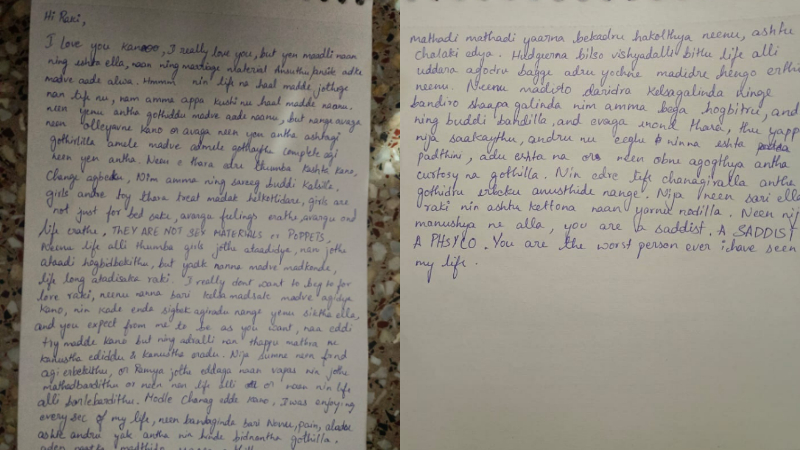 Hi Raki,
I love you kanooo, I really love you, but yen maadli naan
ning ishta ella, naan ning marriage material Anuthu
madve aade alwa. Hmmm nin life na haal madde jothege
nan life nu, nam amma appa kushi nu haal madde naanu.
neen yenu antha gothiddu madve aade naanu, but nange avaga
neen olleyavne kano or avaga neen yen antha ashtagi
gothirlilla amele madve admele gothaythu complete agi
neen yen antha. Neen e thara adru thumba kashta kano,
Change agbeku, Nim amma ning sariyag buddi Kalsile,
girls andre toy thara treat madak helkottidare, girls are
not just for bed sake, avarga feelings erathe, avargu ond
life erathe, THEY ARE NOT SEX MATERIALS or POPPETS,
Neenu life alli thumba girls jothe ataadidya, nam jothe
ataadi hogbidbekitha, but yadk nanna madve madkonde,
life long atadisaka raki. I really dont want to beg to for
love raki, neenu nanna sari
kano, nin kade enda sigbek agiradu nange yenu siktha ella,
and you expect from me to be as you want, naa eddi
try madde kano but ning adralli nan thappu mathra ne
kanustha ediddu & kanustha eradu. Nija sumne nern fond
agi erbekithu, or Ramya jothe eddaga naan vapas nin jothe
mathadbardithu or neen nan life alli or naan nin life
alli barlebardithu. Modle Chanag edde kano, I was enjoying
every sec of my life, neen bandaginda bari Novu, pain, alade
ashte andru yak antha nin hinde bidnantha gothilla.
mathadi mathadi yaarna bekadru hakolthya neenu, ashtu
chalaki edya. Hudgeerna bilso vishyadalli bittu life alli
uddara agodru bagge adru yochne madidre hengo erthidde
neenu. Neenu madiro daridra kelsagalinda ninge
bandiro shaapa galinda nim amma bega hogbitru, and
ning buddi bandilla, and evaga inond thara, thu yappa
nija saakaythu, andru nu eeglu ninna eshta
padthini, adu eshta na or neen obne agogthya antha
curtosy na gothilla. Nin edre life chanagiralla antha
gothidru erbeku anusthide nange. Nija neen sari ella
raki nin ashtu kettona naan yarnu nodilla. Neen nij
manushya ne alla, you are a saddist. A SADDIST
A PHSYCO. You are the worst person ever i have seen
my life.